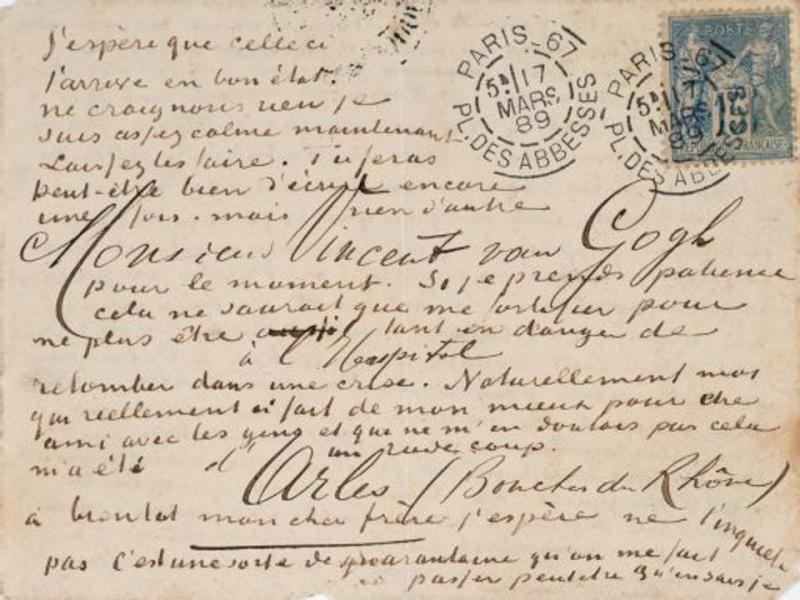 J'espère que celle ci
t'arrive en bon état.
ne craignons rien je
suis assez calme maintenant
Laissez les faire. Tu feras
peut-être bien d'écrire encore
une fois. mais rien d'autre
Monsieur Vincent van Gogh
pour le moment. Si je prends patience
cela ne saurait que me fortifier pour
ne plus être tant en danger de
à l'Hospital
retomber dans une crise. Naturellement moi
qui reellement ai fait de mon mieux pour etre
ami avec les gens et que ne m'en doutais pas cela
m'a été un rude coup.
d'Arles (Bouches du Rhône)
à bientot mon cher frere j'espère ne t'inquiete
pas c'est une sorte de quarantaine qu'on me fait
passer peutetre qu'en sais je
PARIS_67
5E/17
MARS
89
PL. DES ABBESSES
PARIS_67
5E/17
MARS
89
PL. DES ABBESSES
POSTE
15
REPUBLIQUE FRANÇAISE